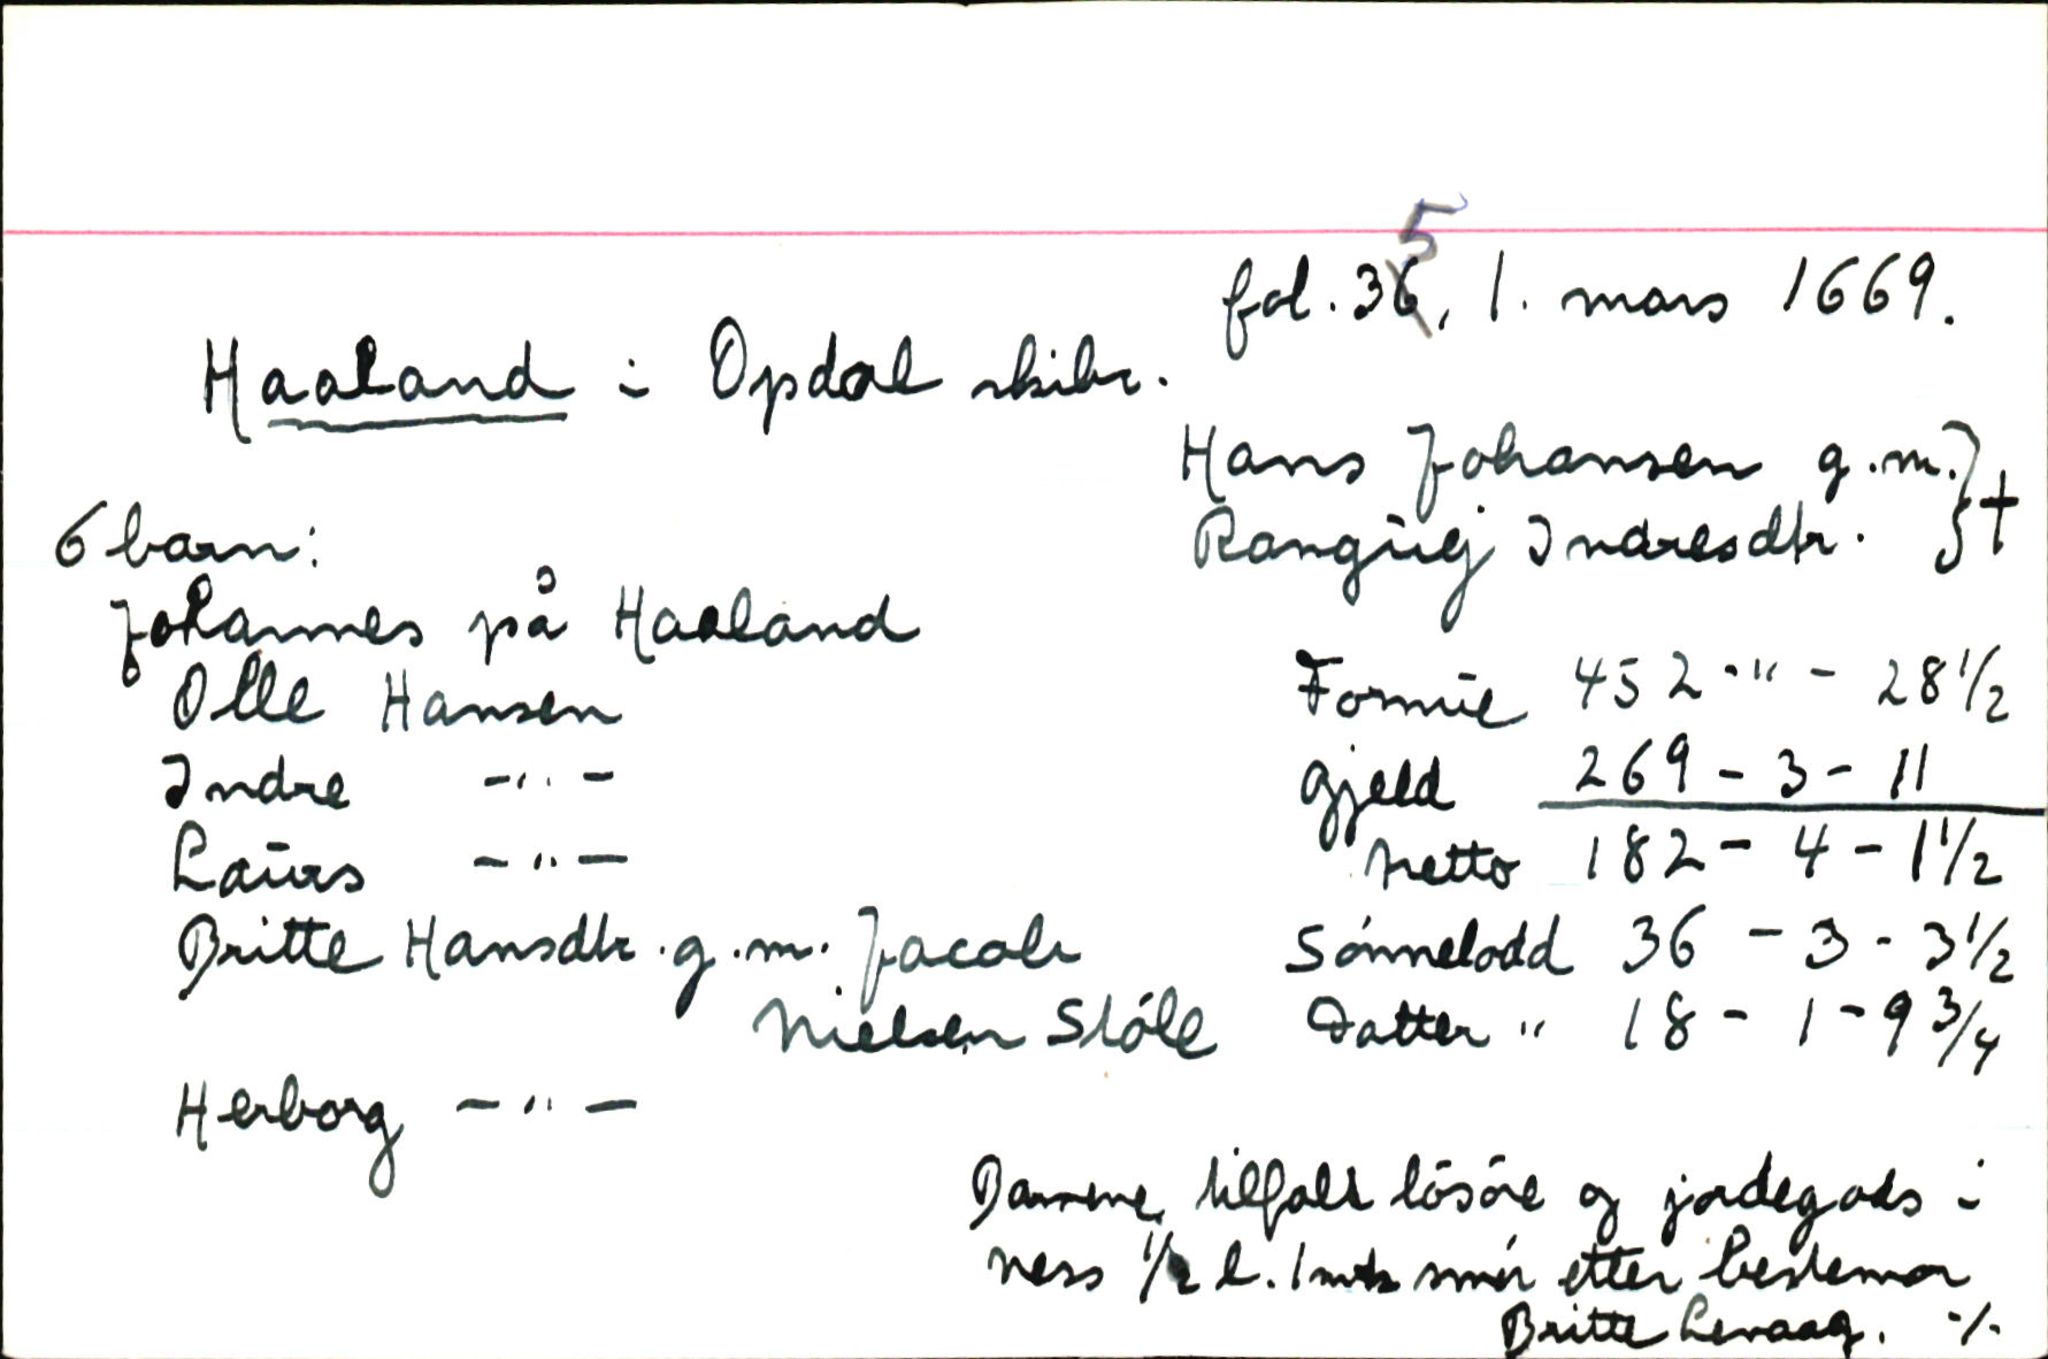 fol. 35, 1. mars 1669.
Haaland i Opdal skibr.
Hans Johansen g.m. } †
Rangúej Indresdtr.
6 barn:
Johannes på Haaland
Olle Hansen
Indre -"-
Laúrs -"-
Britte Hansdtr. g.m. Jacob
Nielsen Stóle
Herborg -"-
Formúe 452 - " - 28 1/2
Gjeld 269 - 3 - 11
Netto 182 - 4 - 1 1/2
Sónnelodd 36 - 3 - 3 1/2
Datter " 18 - 1 - 9 3/4
Barnene tilfalt lösöre og jordegods i
Ness 1/2 l. 1 mk smör etter bestemor
Britte Levaag. ·/·